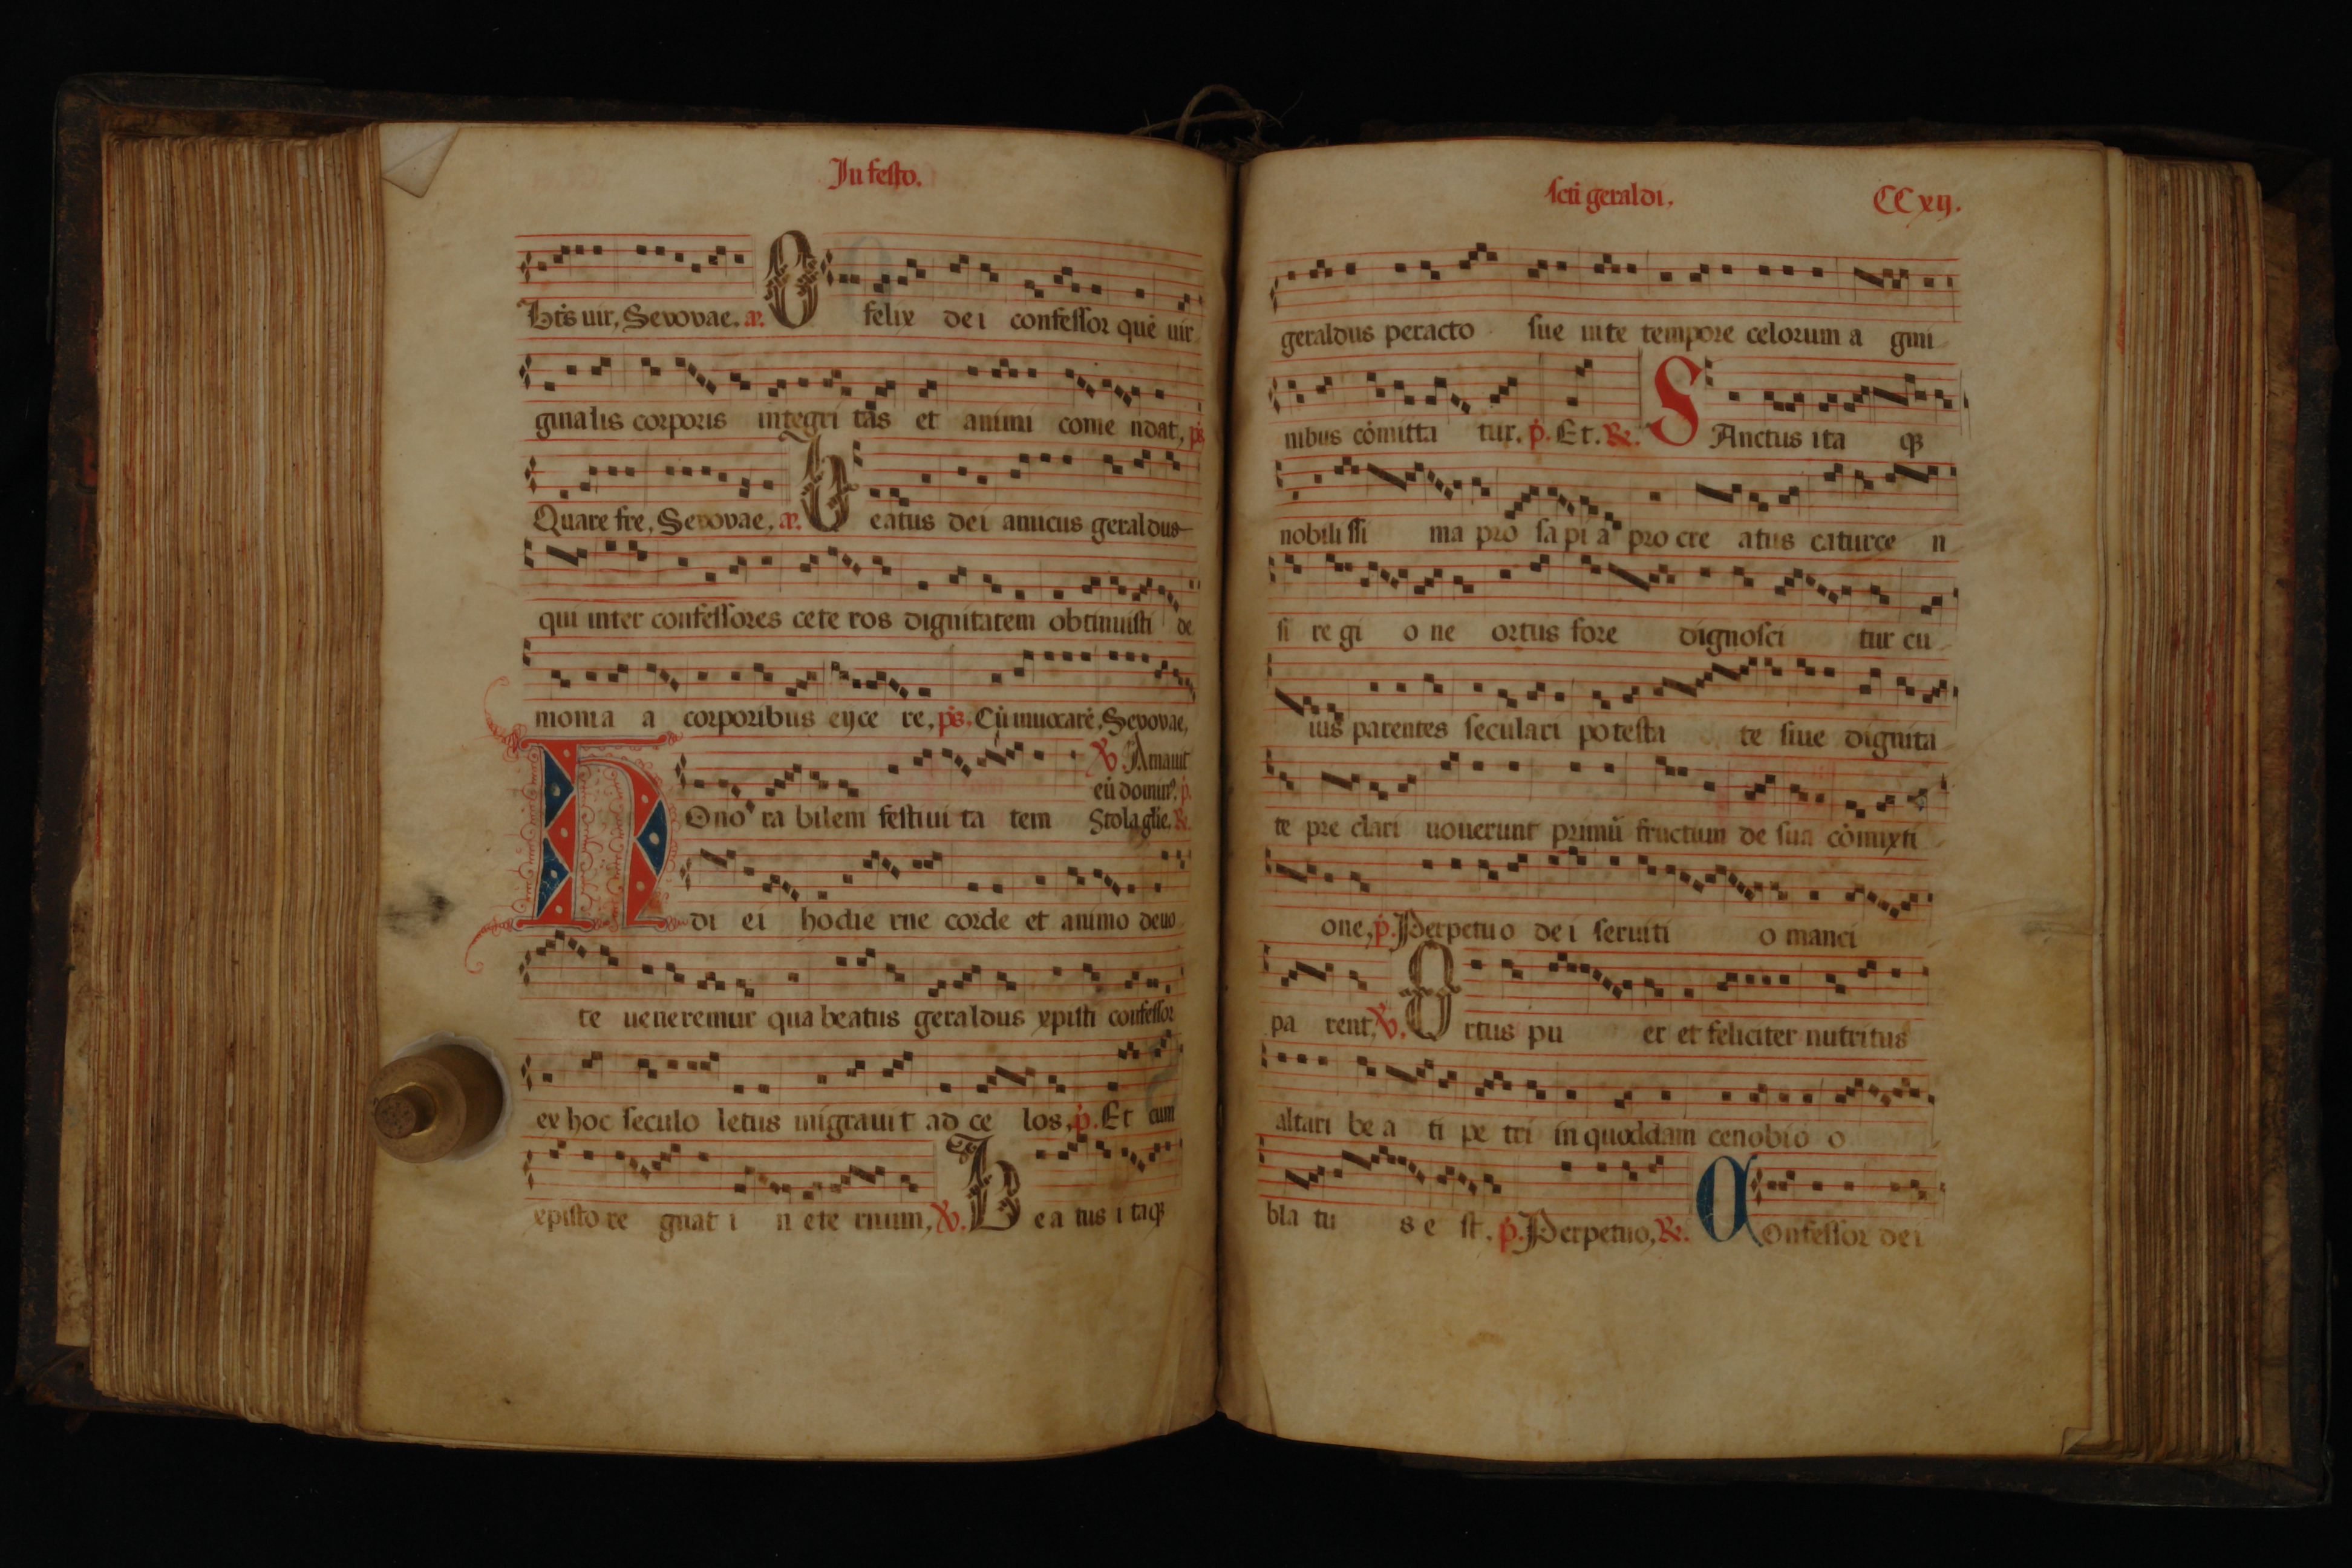 In festo.
Hr̄s uir, Seuouae. añ. O felix dei confessor quē uir
ginalis corporis integri tas et animi come ndat, ps̄
Quare fre, Seuouae, añ. B eatus dei amicus geraldus
qui inter confessores cete ros dignitatem obtinuisti de
monia a corporibus eijce re, ps̄. Cū inuocarē, Seuouae,
℣. Amauit
eū domin⁹, p̄.
H Ono ra bilem festiui ta tem Stola glīe. ℟.
di ei hodie rne corde et animo deuo
te ueneremur qua beatus geraldus xpisti confessor
ex hoc seculo letus migrauit ad ce los, p̄. Et cum
xpisto re gnat i n ete rnum, ℣. B ea tus i taqꝫ
scti geraldi, CCxij.
geraldus peracto sue uite tempore celorum a gmi
nibus cōmitta tur. p̄. Et. ℟. S Anctus ita qꝫ
nobili ssi ma pro sa pi a pro cre atus caturce n
si re gi o ne ortus fore dignosci tur cu
ius parentes seculari potesta te siue dignita
te pre clari uouerunt primū fructum de sua cōmixti
one, p̄. Perpetuo dei seruiti o manci
pa rent, ℣. O rtus pu er et feliciter nutritus
altari be a ti pe tri in quoddam cenobio o
bla tu s e st. p̄. Perpetuo, ℟. C Onfessor dei